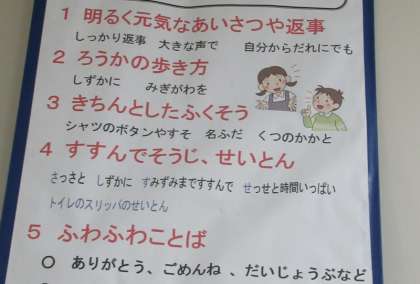 1 明るく元気なあいさつや返事
しっかり返事 大きな声で 自分からだれにでも
2 ろうかの歩き方
しずかに みぎがわを
3 きちんとしたふくそう
シャツのボタンやすそ 名ふだ くつのかかと
4 すすんでそうじ、せいとん
さっさと しずかに すみずみまですすんで せっせと時間いっぱい
トイレのスリッパのせいとん
5 ふわふわことば
○ ありがとう、ごめんね 、だいじょうぶなど